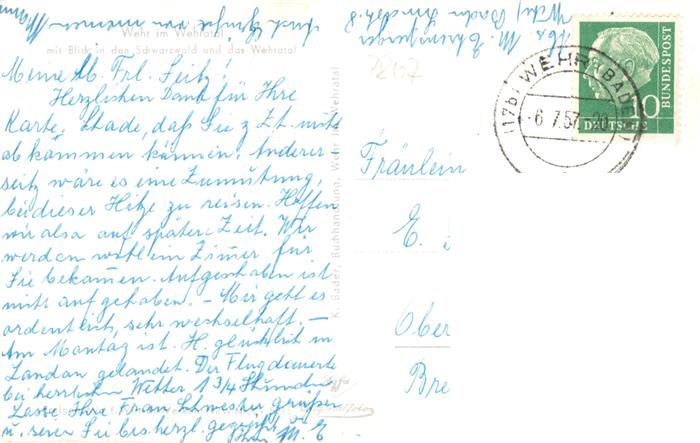 Wehr im Wehratal
mit Blick in den Schwarzwald und das Wehratal
Meine lb. Frl. Seitz!
Herzlichen Dank für Ihre
Karte, Schade, daß Sie z. Zt. nicht
abkommen können. Anderer
seitz wäre es eine Zumutung,
bei dieser Hitze zu reisen. Hoffen
wir also auf später Zeit. Wir
werden wohl ein Zimer für
Sie bekomen. Aufgeschoben ist
nicht aufgehoben. - Mir geht es
ordentlich, sehr wechselhaft, -
Am Montag ist H. glücklich in
London gelandet. Der Flug dauerte
bei herrlichen Wetter 1 3/4 Stunden
Lasse Ihre Frau Schwester grüßen
u. seien Sie bes. herzl. gegrüßt
Ihre M. E
Abs. M.
Wehr/Baden
K. Bader, Buchhandlung, Wehr im Wehratal
7867
WEHR (BADEN)
(17b)
-6.7.57.-20
10
DEUTSCHE
BUNDESPOST
Fräulein
E.
Ober
Bre